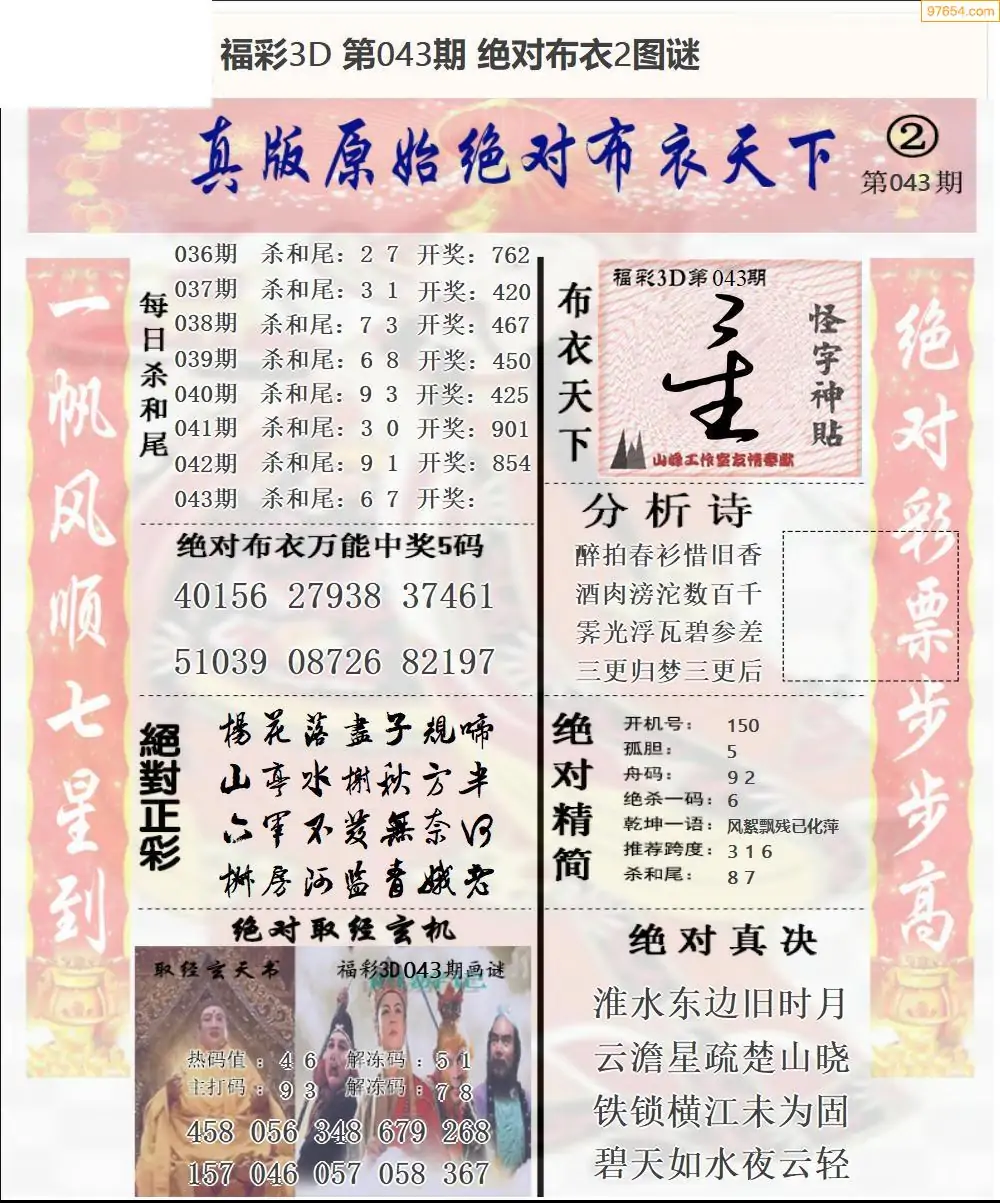 97654.com
福彩3D 第043期 绝对布衣2图谜
真版原始绝对布衣天下
②
第043期
一帆风顺七星到
每日杀和尾
036期 杀和尾：2 7 开奖：762
037期 杀和尾：3 1 开奖：420
038期 杀和尾：7 3 开奖：467
039期 杀和尾：6 8 开奖：450
040期 杀和尾：9 3 开奖：425
041期 杀和尾：3 0 开奖：901
042期 杀和尾：9 1 开奖：854
043期 杀和尾：6 7 开奖：
绝对布衣万能中奖5码
40156 27938 37461
51039 08726 82197
絕對正彩
楊花落盡子規啼
山亭水榭秋方半
六軍不發無奈何
椒房阿监青娥老
绝对取经玄机
取经玄天书
福彩3D043期画谜
热码值：4 6 解冻码：5 1
主打码：9 3 解冻码：7 8
458 056 348 679 268
157 046 057 058 367
布衣天下
福彩3D第043期
怪字神貼
山峰工作室友情奉献
分析诗
醉拍春衫惜旧香
酒肉滂沱数百千
霁光浮瓦碧参差
三更归梦三更后
绝对精简
开机号：150
孤胆：5
舟码：9 2
绝杀一码：6
乾坤一语：风絮飘残已化萍
推荐跨度：3 1 6
杀和尾：8 7
绝对真决
淮水东边旧时月
云澹星疏楚山晓
铁锁横江未为固
碧天如水夜云轻
绝对彩票步步高